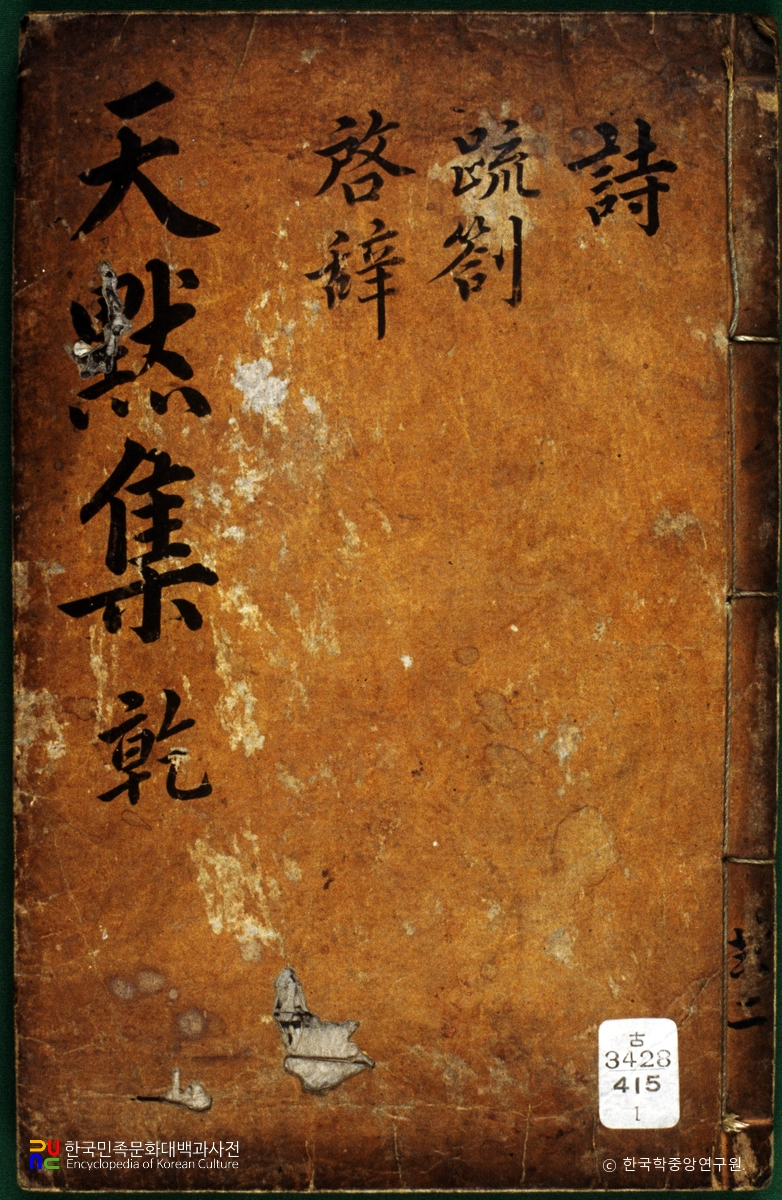 詩
䟽劄
啓辭
天黙集 乾
共二
古
3428
415
1
한국민족문화대백과사전
Encyclopedia of Korean Culture
© 한국학중앙연구원